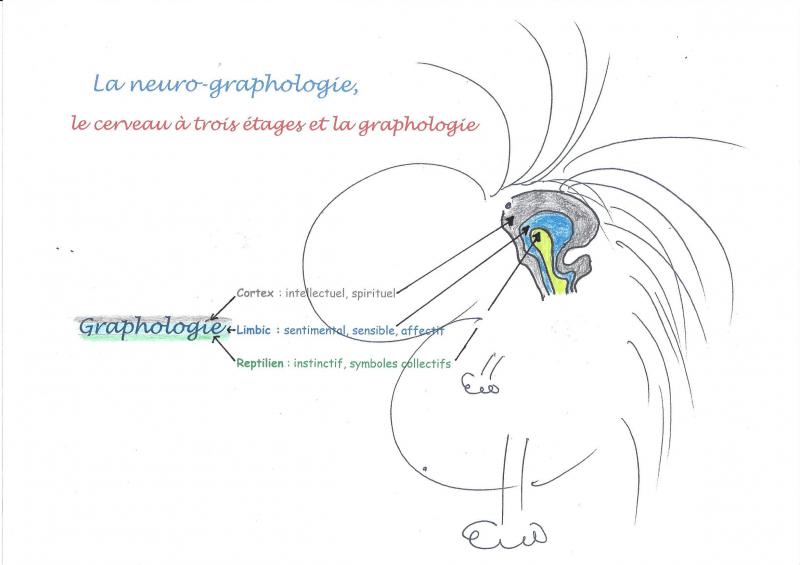 La neuro-graphologie,
le cerveau à trois étages et la graphologie
Cortex : intellectuel, spirituel
Graphologie
Limbic : sentimental, sensible, affectif
Reptilien : instinctif, symboles collectifs